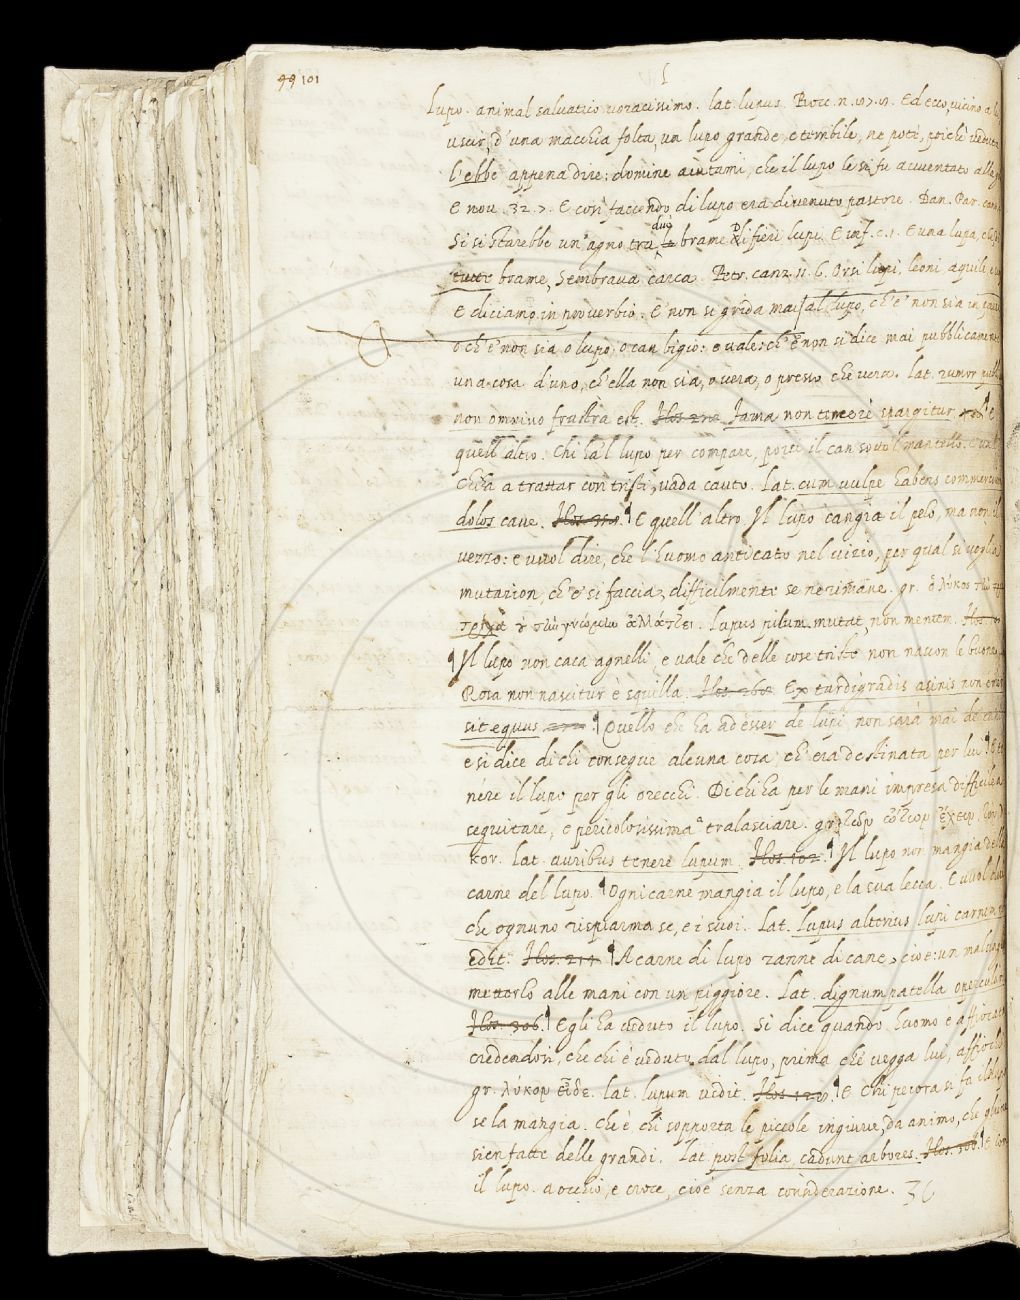 99 101
L
Lupo. animal salvatico voracissimo. lat. lupus. Bocc. n. 97. 9. Ed ecco, vicino a lei
uscir, d'una macchia folta, un lupo grande, e terribile, ne potè, poichè veduto
l'ebbe appena dire: domine aiutami, che il lupo le si fu avventato alla
E nov. 32. 7. E così faccendo di lupo era divenuto pastore. Dan. Par. can.
Si si starebbe un'agno tra due brame Di fieri lupi. E inf. c. 1. E una lupa, che di
tutte brame, sembrava carca. Petr. canz. 11. 6. Orsi lupi, leoni, aquile e
E diciamo in proverbio. E' non si grida mai al lupo, ch'e' non sia in paese
o ch'e' non sia o lupo, o can bigio: e vale: ch'e' non si dice mai pubblicamente
una cosa d'uno, ch'ella non sia, o vera, o presso che vera. lat. rumor publicus
non omnino frustra est. Flos 270 fama non temerè spargitur. E
quell'altro. Chi ha'l lupo per compare, porti il can sotto'l mantello. E vale
Chi ha a trattar con tristi, vada cauto. Lat. cum vulpe habens commercium
dolos cave. Flos. 359. E quell'altro. Il lupo cangia il pelo, ma non il
vezzo: e vuol dire, che l'huomo anticato nel vizio, per qual si voglia
mutazion, ch'e' si faccia, difficilmente se ne rimane. gr. ὁ λύκος τὴν
τρίχα οὐ τὴν γνώμην ἀλλάττει. Lupus pilum mutat, non mentem. Flos.
Il lupo non caca agnelli e vale che delle cose triste non nascon le buone
Rosa non nascitur è squilla. Flos. 268. Ex tardigradis asinis non
sit equus 272. Quello che ha ad esser de lupi non sarà mai de cani
e si dice di chi consegue alcuna cosa, ch'era destinata per lui. E te
nére il lupo per gli orecchi. Di chi ha per le mani impresa difficile a
seguitare, e pericolosissima a tralasciare. gr. τῶν ὤτων ἔχειν τὸν λύ
κον. Lat. auribus tenere lupum. Flos. 102. Il lupo non mangia della
carne del lupo. Ogni carne mangia il lupo, e la sua lecca. E vuol dire
che ognuno risparma se, e i suoi. Lat. lupus alterius lupi carnem non
edit. Flos. 214. A carne di lupo zanne di cane, cioè: un malvagio
metterlo alle mani con un piggiore. Lat. dignum patella operculum
Flos. 306. Egli ha veduto il lupo. Si dice quando l'uomo è affiocato
credendosi, che chi è veduto dal lupo, prima che vegga lui, affiochi
gr. λύκον εἶδε. lat. lupum vidit. Flos. 120. E Chi pecora si fa il lupo
se la mangia. Che è chi sopporta le piccole ingiurie, da animo, che gli
sien fatte delle grandi. Lat. post folia, cadunt arbores. Flos. 306. E con
il lupo. a occhio, e croce, cioè senza considerazione. 36